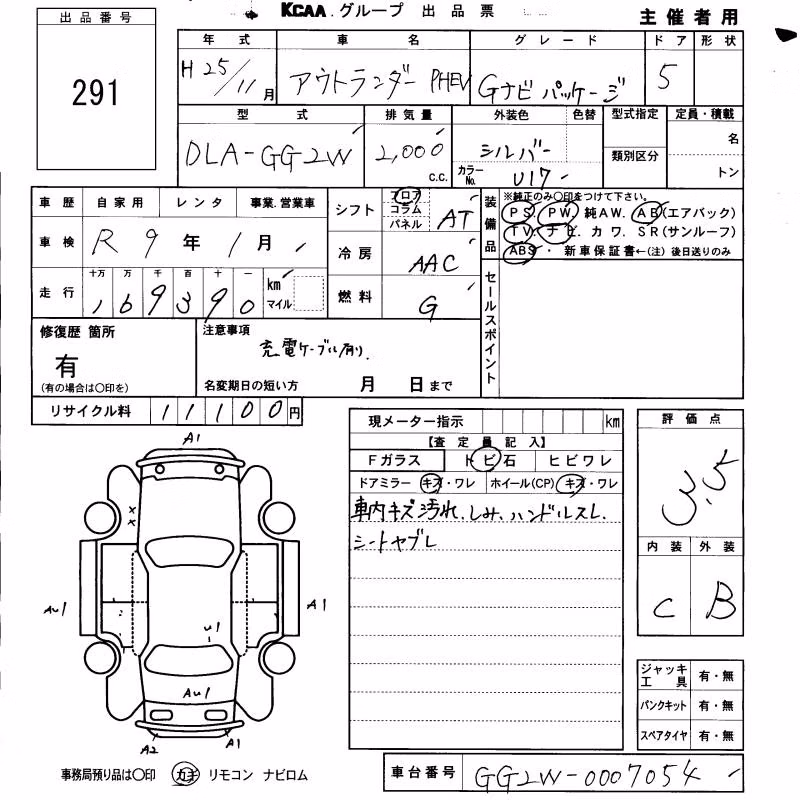 KCAA.グループ 出品票
主催者用
出品番号
291
年式 車名 グレード ドア 形状
H25/11月 アウトランダーPHEV Gナビパッケージ 5
型式 排気量 外装色 色替 型式指定 定員・積載
DLA-GG2W 2,000 c.c. シルバー 類別区分 名
カラーNo. U17 トン
車歴 自家用 レンタ 事業.営業車
車検 R 9年 1月
走行 十万 万 千 百 十 一
169390 km マイル
シフト フロア コラム パネル AT
冷房 AAC
燃料 G
装備品
※純正のみ〇印をつけて下さい。
PS. PW. 純AW. AB(エアバック)
TV. ナビ. カワ. SR(サンルーフ)
ABS・ 新車保証書←(注) 後日送りのみ
セールスポイント
修復歴 箇所
有
(有の場合は〇印を)
注意事項
充電ケーブル有り.
名変期日の短い方 月 日まで
リサイクル料 11100円
現メーター指示 km
【査定員記入】
Fガラス トビ石 ヒビワレ
ドアミラー キズ・ワレ ホイール(CP) キズ・ワレ
車内キズ汚れ、しみ、ハンドルスレ
シートヤブレ
評価点
3.5
内装 外装
C B
ジャッキ工具 有・無
パンクキット 有・無
スペアタイヤ 有・無
A1
××
AU1 A1
U1
AU1
A2 A1
事務局預り品は〇印 カギ リモコン ナビロム
車台番号 GG2W-0007054